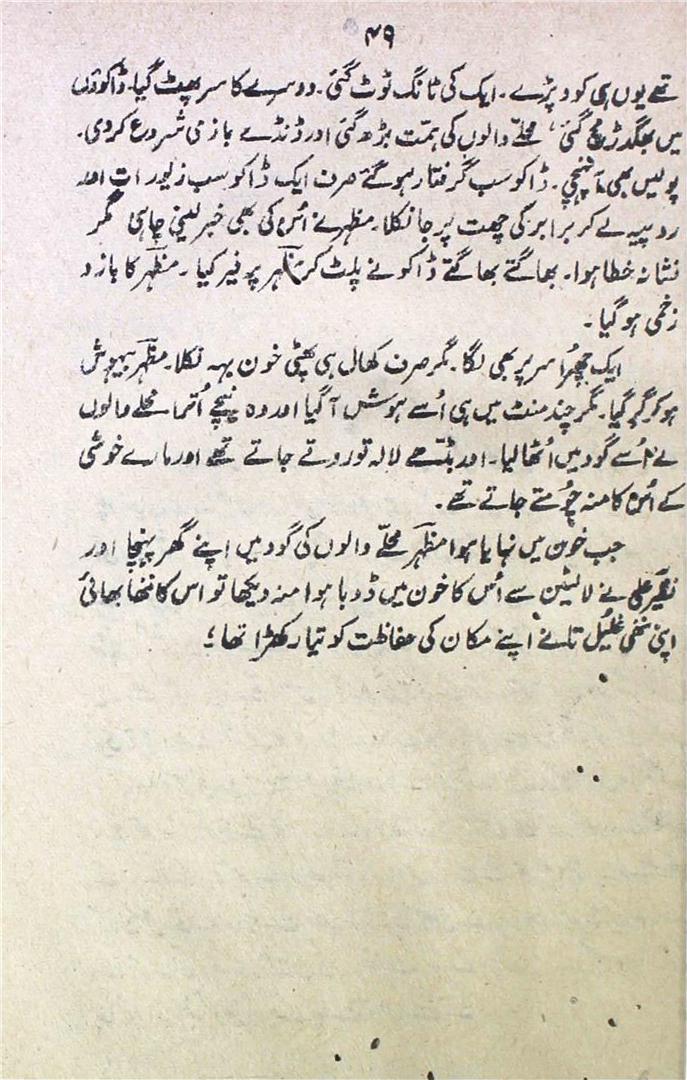 ۴۹
تھے یوں ہی کود پڑے۔ ایک کی ٹانگ ٹوٹ گئی۔ دوسرے کا سر پھٹ گیا۔ ڈاکوؤں
میں بھگدڑ مچ گئی، محلّے والوں کی ہمّت بڑھ گئی اور ڈنڈے بازی شروع کر دی۔
پولیس بھی آ پہنچی۔ ڈاکو سب گرفتار ہو گئے صرف ایک ڈاکو سب زیورات اور
روپیہ لے کر برابر کی چھت پر جا نکلا۔ مظہر نے اس کی بھی خبر لینی چاہی مگر
نشانہ خطا ہوا۔ بھاگتے بھاگتے ڈاکو نے پلٹ کر مظہر پر فیر کیا۔ مظہر کا بازو
زخمی ہو گیا۔
ایک چھرّا سر پر بھی لگا۔ مگر صرف کھال ہی پھٹی خون بہہ نکلا۔ مظہر بیہوش
ہو کر گر گیا۔ مگر چند منٹ میں ہی اُسے ہوش آ گیا اور وہ نیچے اُترا محلے والوں
نے اُسے گود میں اُٹھا لیا۔ اور بڈھے لالہ تو روتے جاتے تھے اور مارے خوشی
کے اس کا منہ چومتے جاتے تھے۔
جب خون میں نہایا ہوا مظہر محلّے والوں کی گود میں اپنے گھر پہنچا اور
علی نے لالٹین سے اُس کا خون میں ڈوبا ہوا منہ دیکھا تو اس کا ننھا بھائی
اپنی ننھی غلیل تانے اپنے مکان کی حفاظت کو تیار کھڑا تھا؛